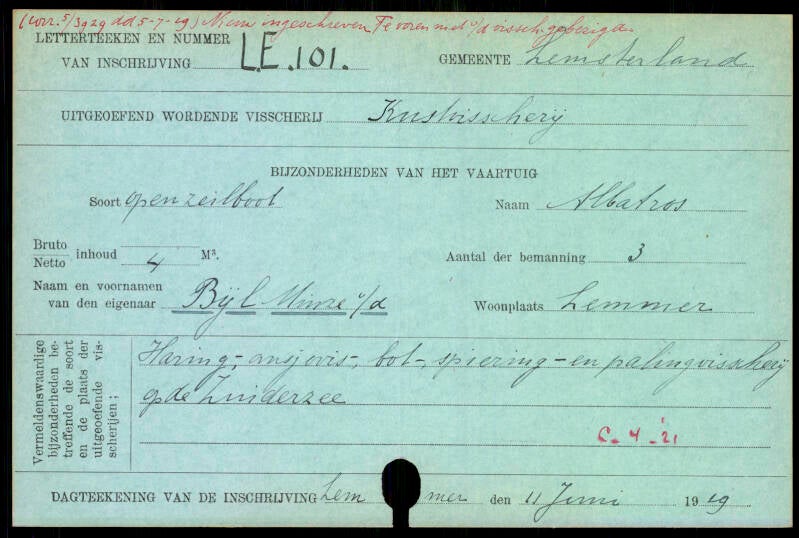 (Corr. 5/3929 dd 5-7-19) Nieuw ingeschreven Te voren niet o/d visscherij gebezigd.
LETTERTEEKEN EN NUMMER
VAN INSCHRIJVING L.E. 101. GEMEENTE Lemsterland
UITGEOEFEND WORDENDE VISSCHERIJ Kustvisscherij
BIJZONDERHEDEN VAN HET VAARTUIG
Soort open zeilboot Naam Albatros
Bruto
Netto inhoud 4 M³. Aantal der bemanning 3
Naam en voornamen
van den eigenaar Bijl Minze o/d Woonplaats Lemmer
Vermeldenswaardige
bijzonderheden be-
treffende de soort
en de plaats der
uitgeoefende vis-
scherijen;
Haring-, ansjovis-, bot-, spiering- en palingvisscherij
op de Zuiderzee
6-4-'21
DAGTEEKENING VAN DE INSCHRIJVING Lemmer den 11 Juni 1919